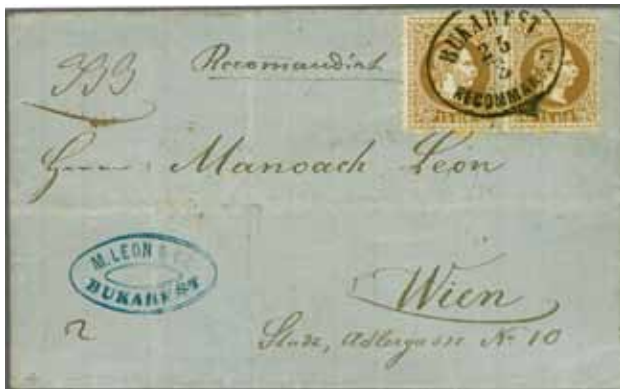 333
Recomandirt
BUKAREST
RECOMMAN
Herrn Manoach Leon
M. LEON &
BUKAREST
Wien
Stadt, Adlergasse No 10